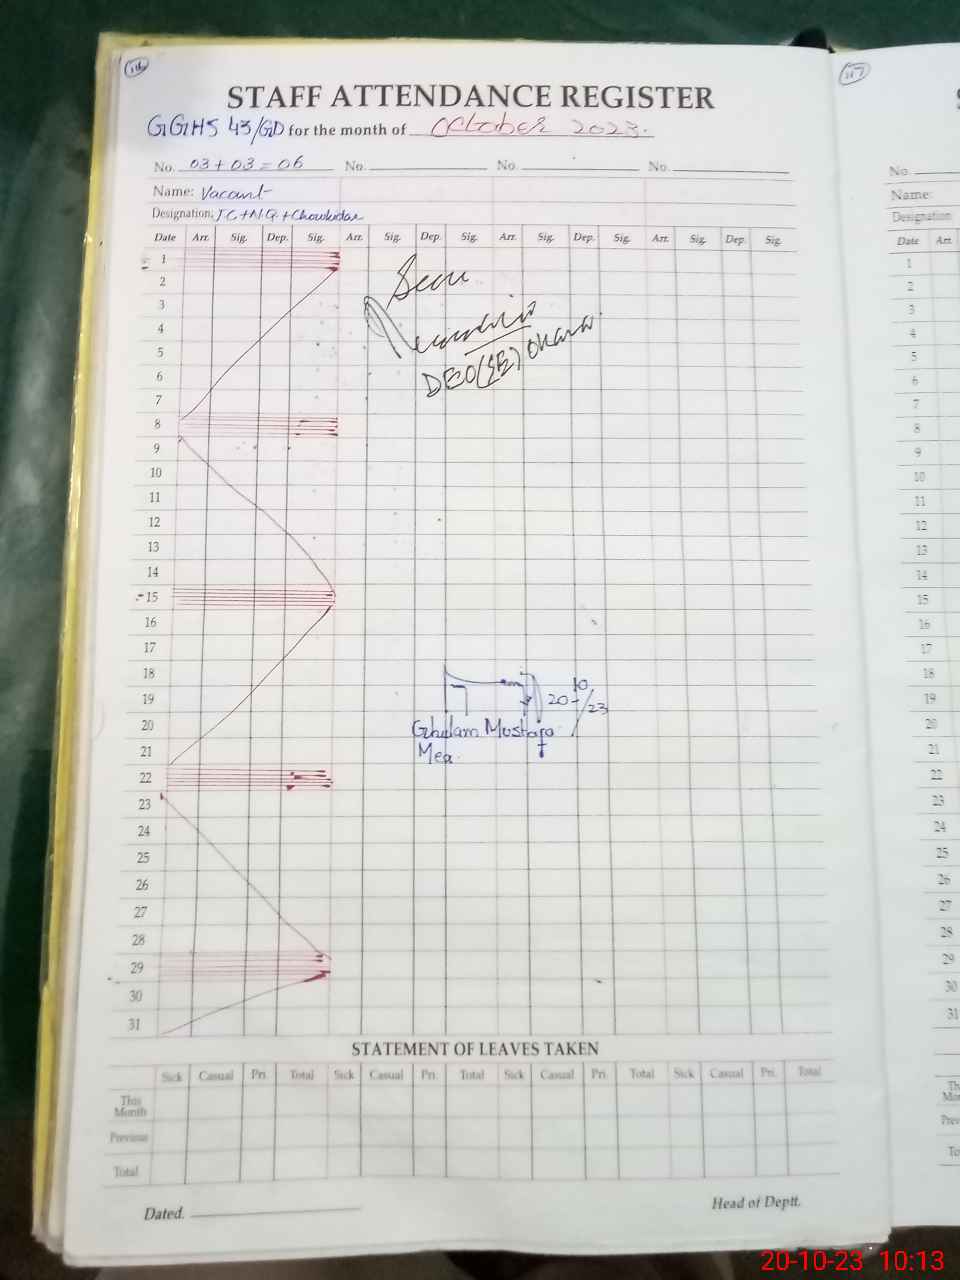 116
STAFF ATTENDANCE REGISTER
GGHS 43/GD for the month of October 2023.
No. 03 + 03 = 06 No. No. No.
Name: Vacant
Designation: J.C + N.Q + Chowkidar
Date Arr. Sig. Dep. Sig. Arr. Sig. Dep. Sig. Arr. Sig. Dep. Sig. Arr. Sig. Dep. Sig.
1
2
3
4
5
6
7
8
9
10
11
12
13
14
15
16
17
18
19
20
21
22
23
24
25
26
27
28
29
30
31
Seen
DEO(SE) Okara.
20-10/23
Ghulam Mustafa
Mea.
STATEMENT OF LEAVES TAKEN
Sick Casual Pri. Total Sick Casual Pri. Total Sick Casual Pri. Total Sick Casual Pri. Total
This Month
Previous
Total
Dated. Head of Deptt.
117
S
No.
Name:
Designation
Date Arr.
1
2
3
4
5
6
7
8
9
10
11
12
13
14
15
16
17
18
19
20
21
22
23
24
25
26
27
28
29
30
31
Th
Mo
Prev
To
20-10-23 10:13